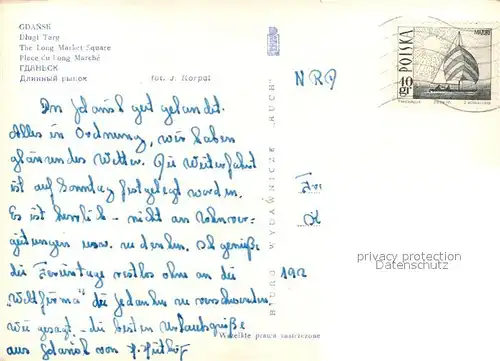 GDAŃSK
Długi Targ
The Long Market Square
Place du Long Marché
ГДАНЬСК
Длинный рынок
fot. J. Korpal
In Gdańsk gut gelandet.
Alles in Ordnung, wir haben
glänzendes Wetter. Die Weiterfahrt
ist auf Sonntag festgelegt worden.
Es ist herrlich - nicht an Lohnver-
geitungen usw. zu denken. Ich genieße
die Ferientage restlos ohne an die
"Weltfirma" die Gedanken zu verschwenden.
Wie gesagt - die besten Urlaubsgrüße
aus Gdańsk von
BIURO WYDAWNICZE „RUCH"
Wszelkie prawa zastrzeżone
NRF
192
POLSKA
MAZURY
40 gr
privacy protection
AnsichtskartenVersand.com